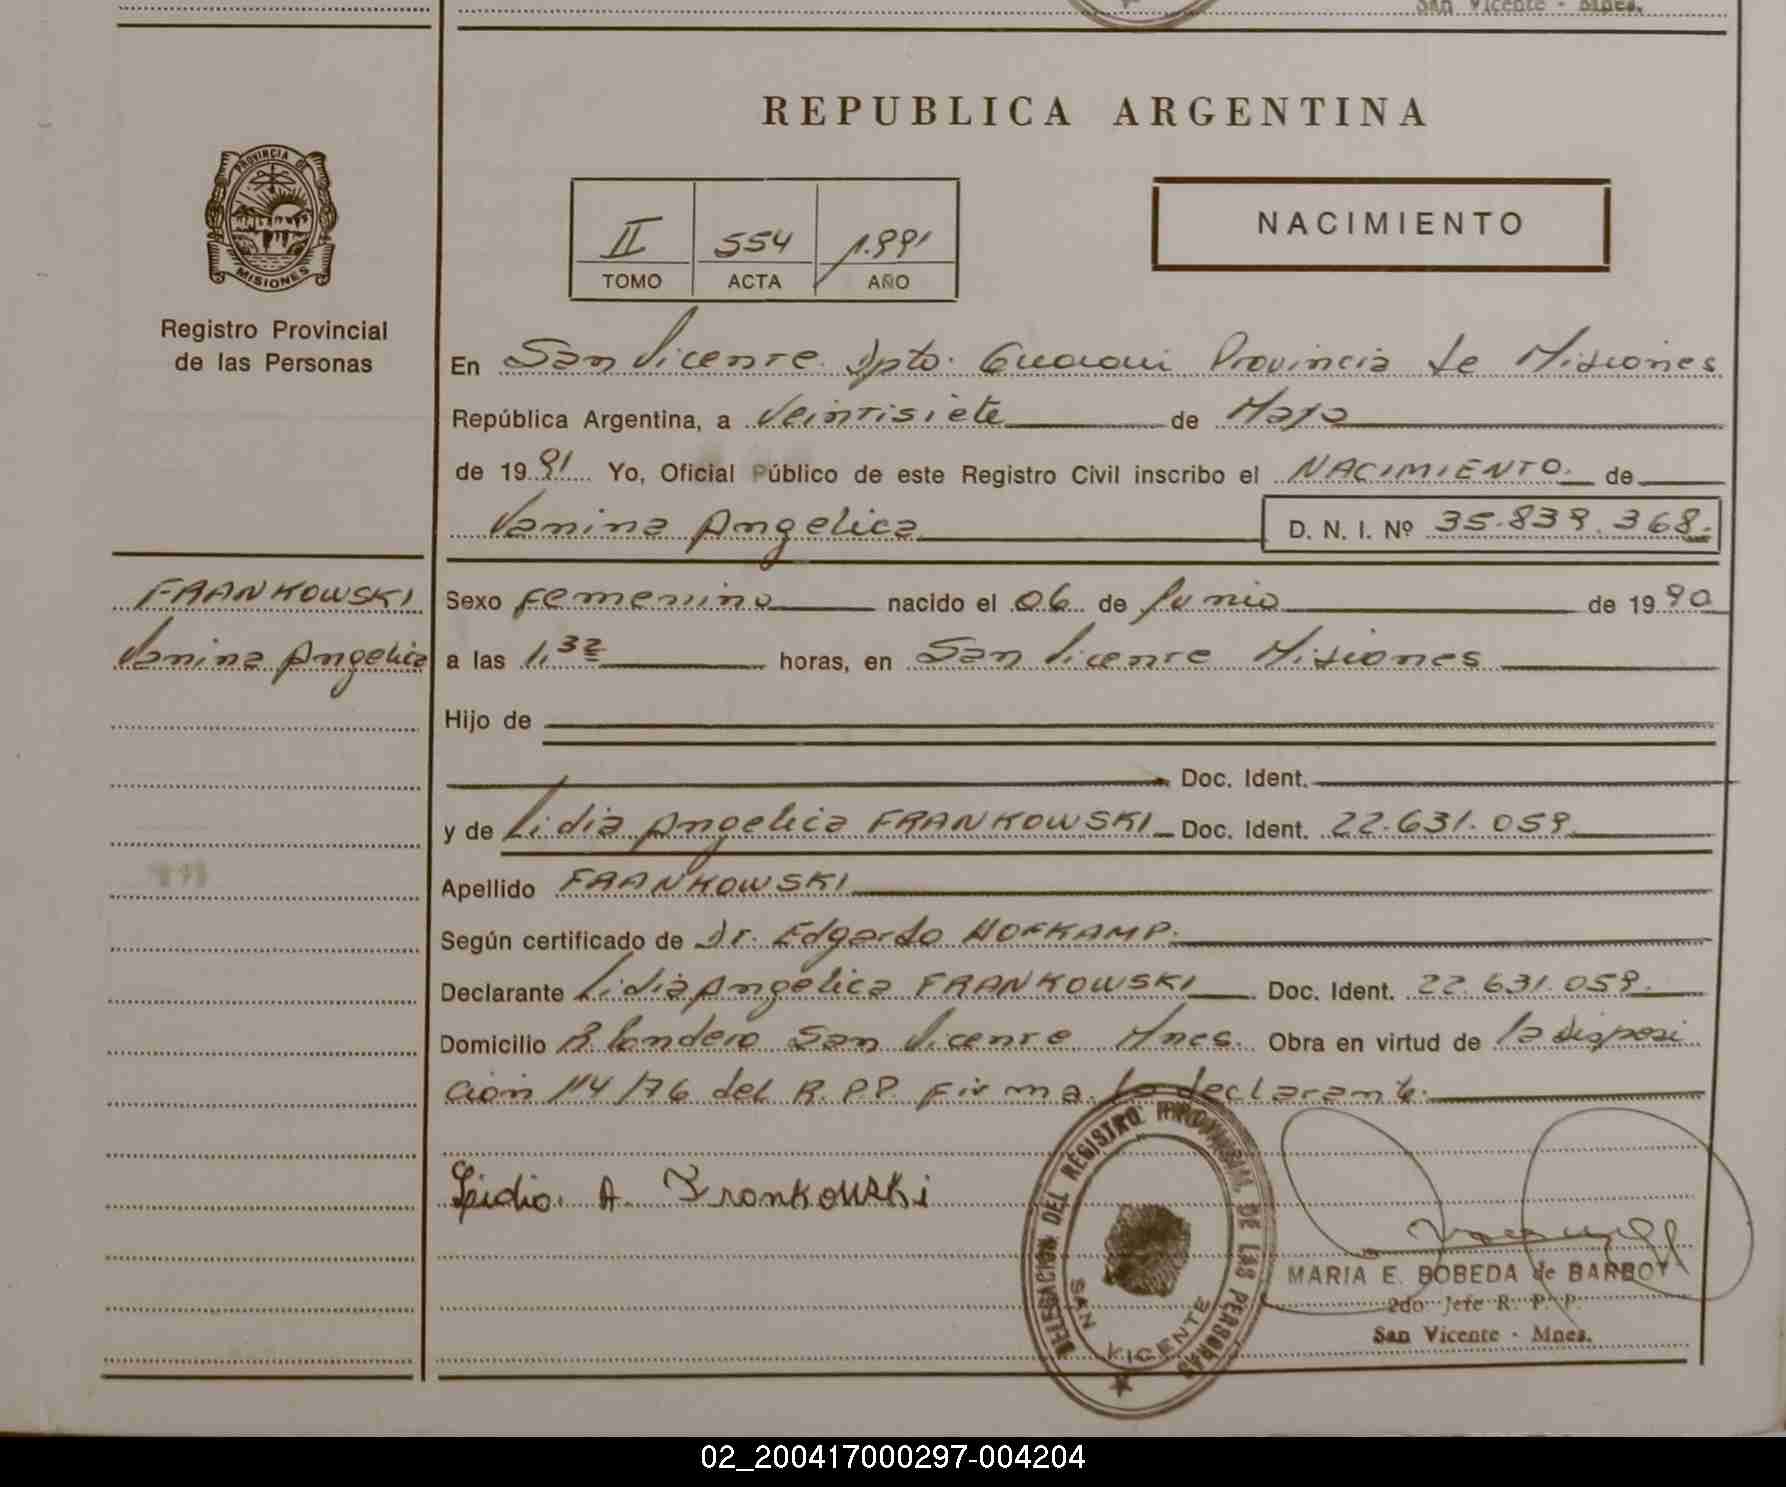 San Vicente - Mnes.
REPUBLICA ARGENTINA
PROVINCIA DE
MISIONES
Registro Provincial
de las Personas
II 554 1.991
TOMO ACTA AÑO
NACIMIENTO
En San Vicente Dpto. Guarani Provincia de Misiones
República Argentina, a Veintisiete de Mayo
de 19 91 Yo, Oficial Público de este Registro Civil inscribo el NACIMIENTO. de
Vanina Angelica D. N. I. Nº 35.839.368.
FRANKOWSKI
Vanina Angelica
Sexo femenino nacido el 06 de Junio de 19 90
a las 1,32 horas, en San Vicente Misiones
Hijo de
Doc. Ident.
y de Lidia Angelica FRANKOWSKI Doc. Ident. 22.631.059
Apellido FRANKOWSKI
Según certificado de Dr. Edgardo HOFKAMP.
Declarante Lidia Angelica FRANKOWSKI Doc. Ident. 22.631.059.
Domicilio San Vicente Mnes. Obra en virtud de la disposi
ción 114/76 del R.P.P. firma la declarante.
Leidia. A. Frankowski
DELEGACION DEL REGISTRO PROVINCIAL DE LAS PERSONAS
SAN VICENTE
MARIA E. BOBEDA de BARBOY
2do Jefe R. P. P.
San Vicente - Mnes.
02_200417000297-004204